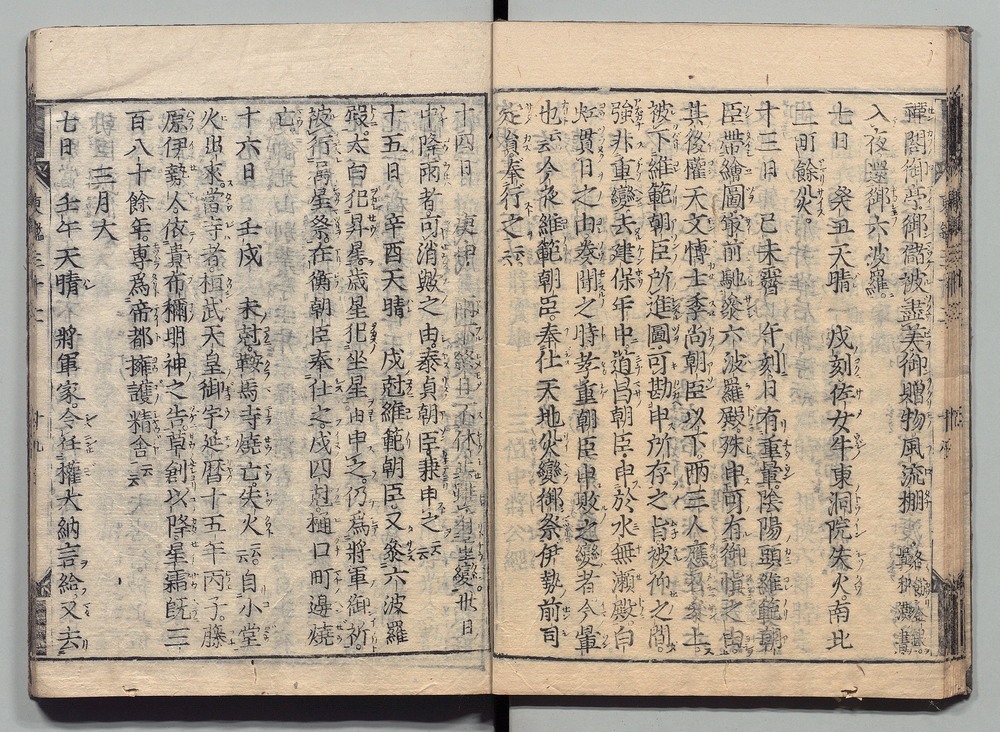 禪閤御亭御儲被盡美御贈物風流棚
入夜還御六波羅
七日 癸丑天晴 戌刻佐女牛東洞院失火南北
二町餘災
十三日 己未霽 午刻日有重暈陰陽頭維範朝
臣帶繪圖最前馳參六波羅殿殊申可有御愼之由
其後權天文博士季尚朝臣以下兩三人應召參上
被下維範朝臣所進圖可勘申所存之旨被仰之間
強非重變去建保年中道昌朝臣申於水無瀬殿白
虹貫日之由奏聞之時孝重朝臣申敗之變者今暈
也云云今夜維範朝臣奉仕天地災變御祭伊勢前司
定員奉行之云云
十四日 庚申 雨
中降雨者可消毀之由泰貞朝臣隷申之云云
十五日 辛酉天晴 戌尅維範朝臣又參六波羅
殿太白犯昴星歳星犯坐星由申之仍爲將軍御祈
被行属星祭在衡朝臣奉仕之戌四尅樋口町邊燒
亡
十六日 壬戌 未尅鞍馬寺燒亡失火云云自小堂
火出來當寺者桓武天皇御宇延暦十五年丙子藤
原伊勢人依貴布禰明神之告草創以降星霜既三
百八十餘年專爲帝都擁護精舍云云
三月大
七日 壬午天晴 將軍家令任權大納言給又去